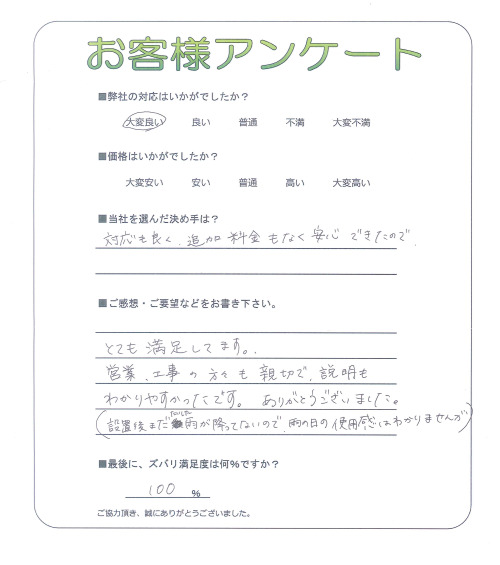 お客様アンケート
■弊社の対応はいかがでしたか？
大変良い 良い 普通 不満 大変不満
■価格はいかがでしたか？
大変安い 安い 普通 高い 大変高い
■当社を選んだ決め手は？
対応も良く、追加料金もなく安心できたので。
■ご感想・ご要望などをお書き下さい。
とても満足してます。
営業、工事の方々も親切で、説明も
わかりやすかったです。ありがとうございました。
(設置後まだ雨が降ってないので、雨の日の使用感はわかりませんが)
■最後に、ズバリ満足度は何%ですか？
100 %
ご協力頂き、誠にありがとうございました。